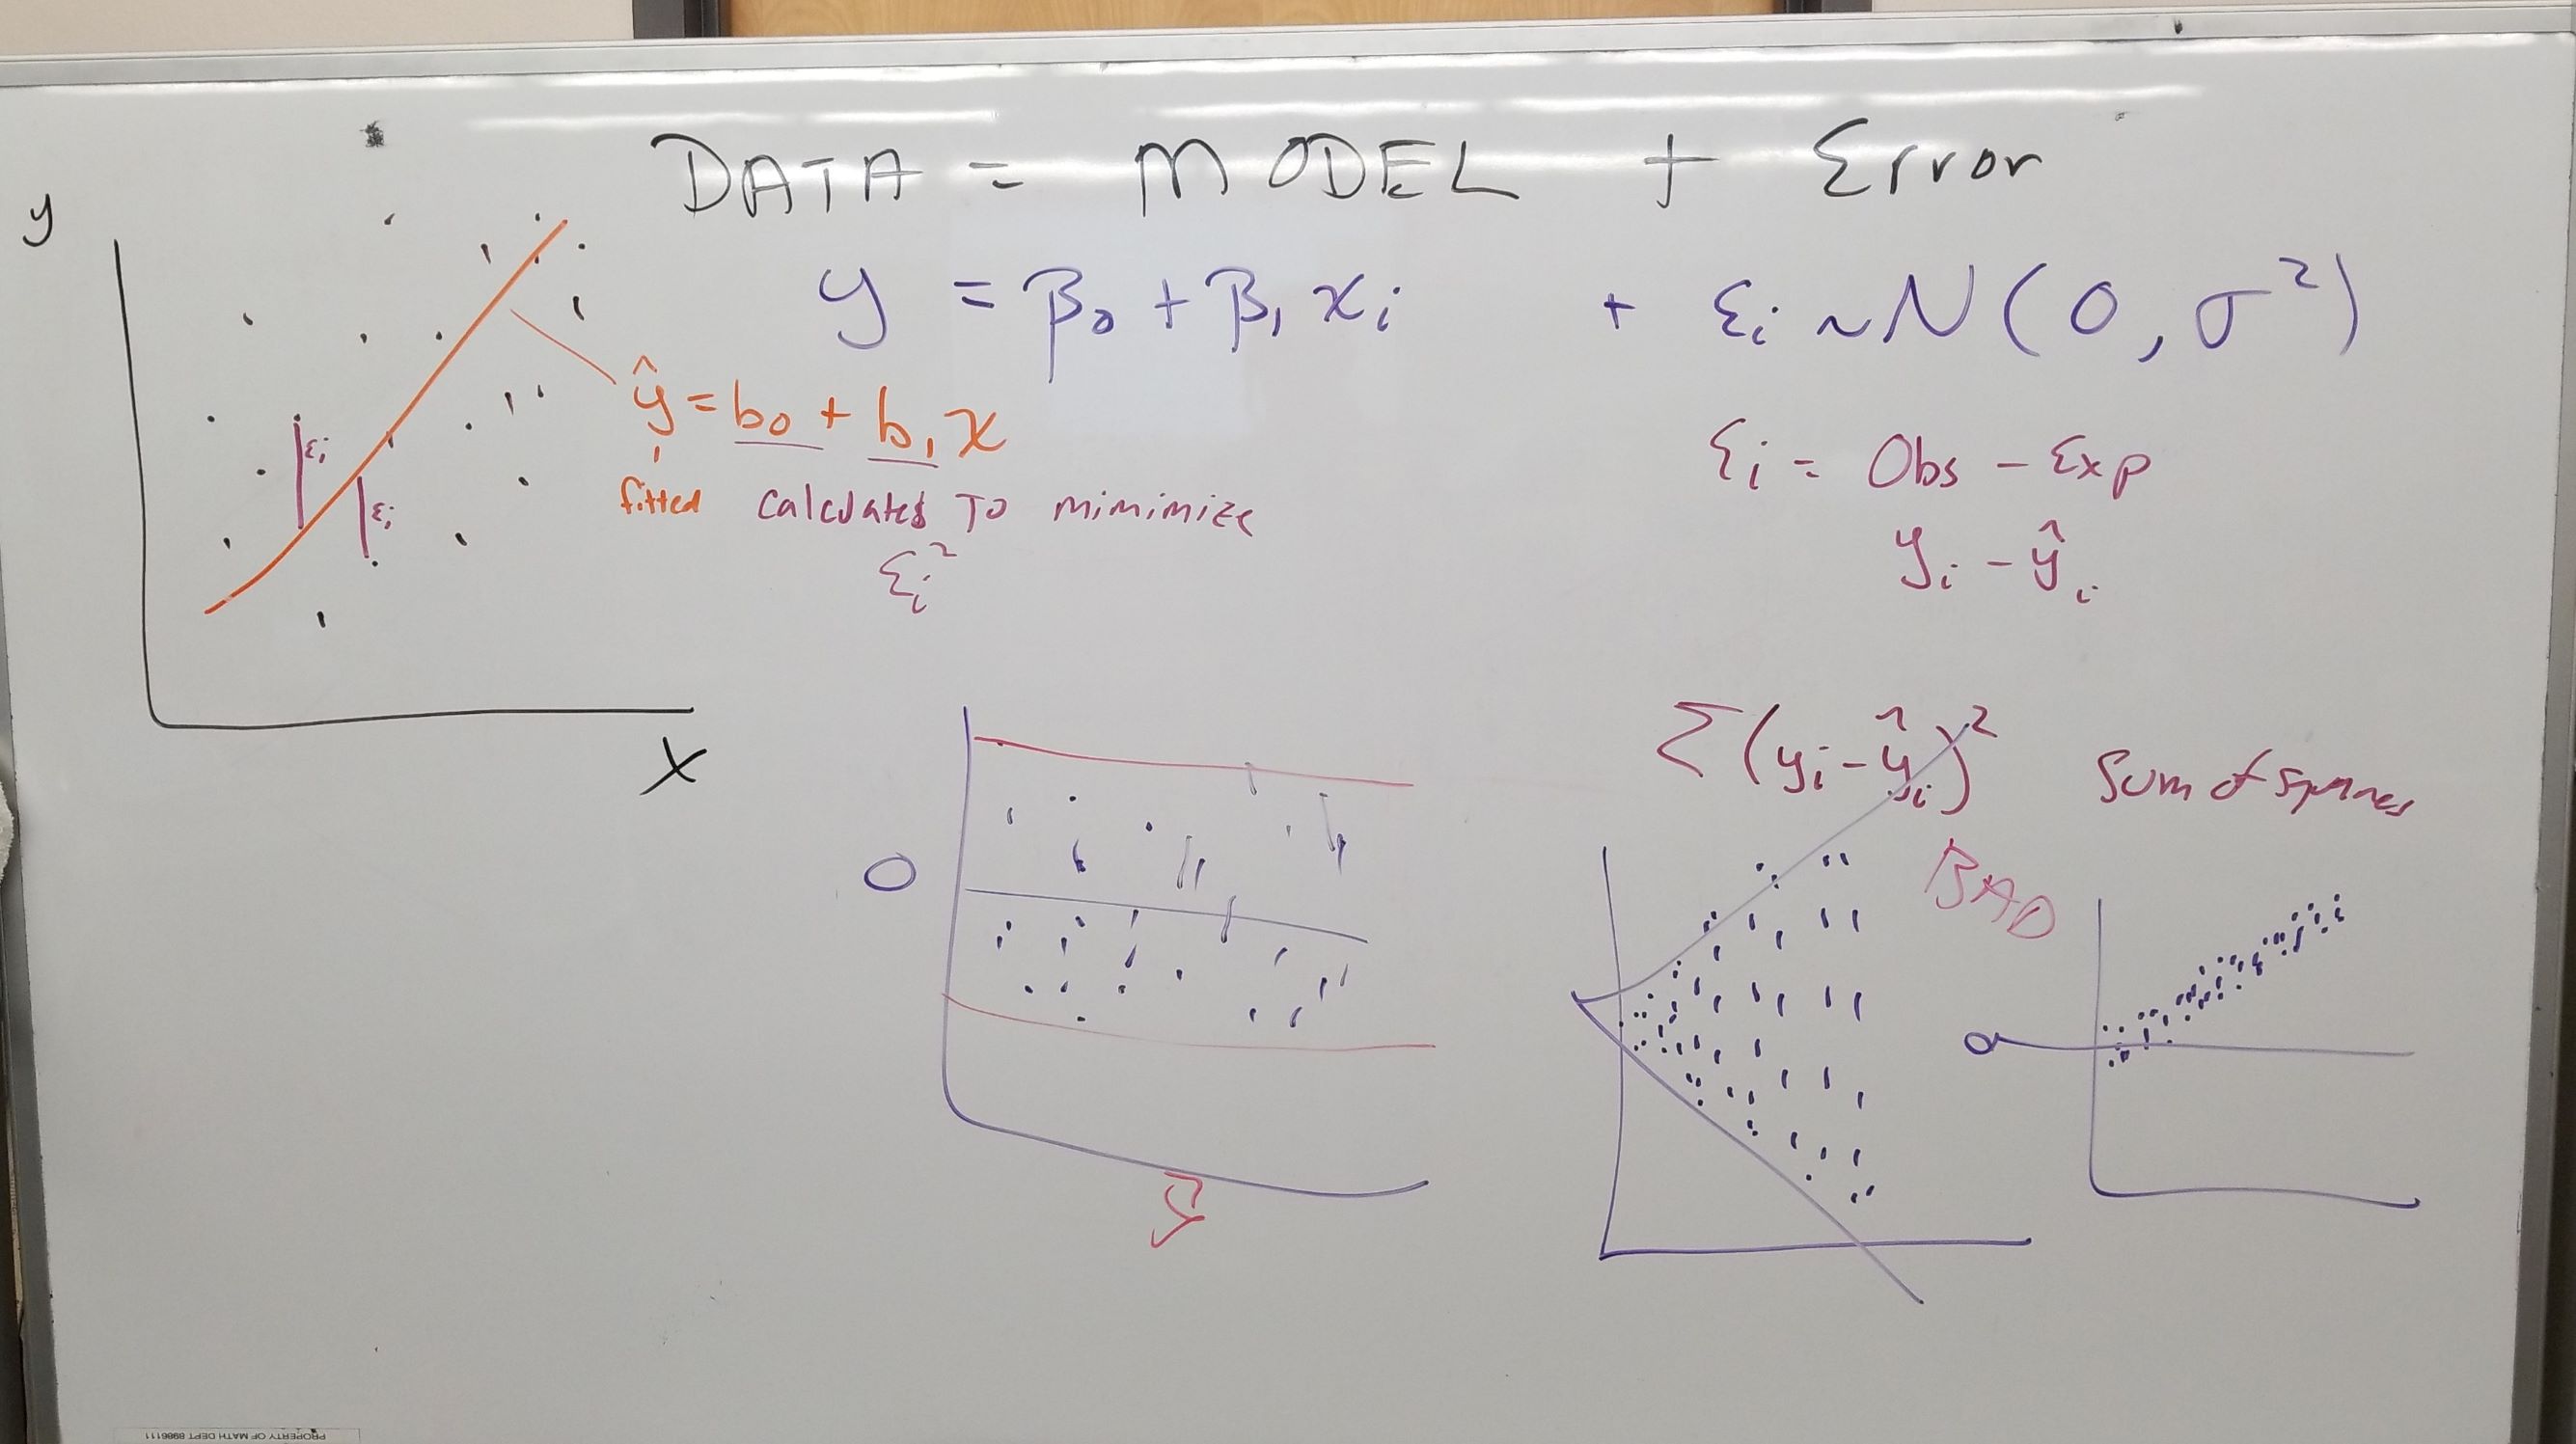 DATA = MODEL + Error
y
y = β₀ + β₁ xᵢ + εᵢ ~ N(0, σ²)
ŷ = b₀ + b₁ x
εᵢ
εᵢ
fitted calculated to mimimize
εᵢ²
εᵢ = Obs - Exp
yᵢ - ŷᵢ
x
Σ(yᵢ - ŷᵢ)² Sum of squares
BAD
0
0
ŷ
PROPERTY OF MATH DEPT 8986111